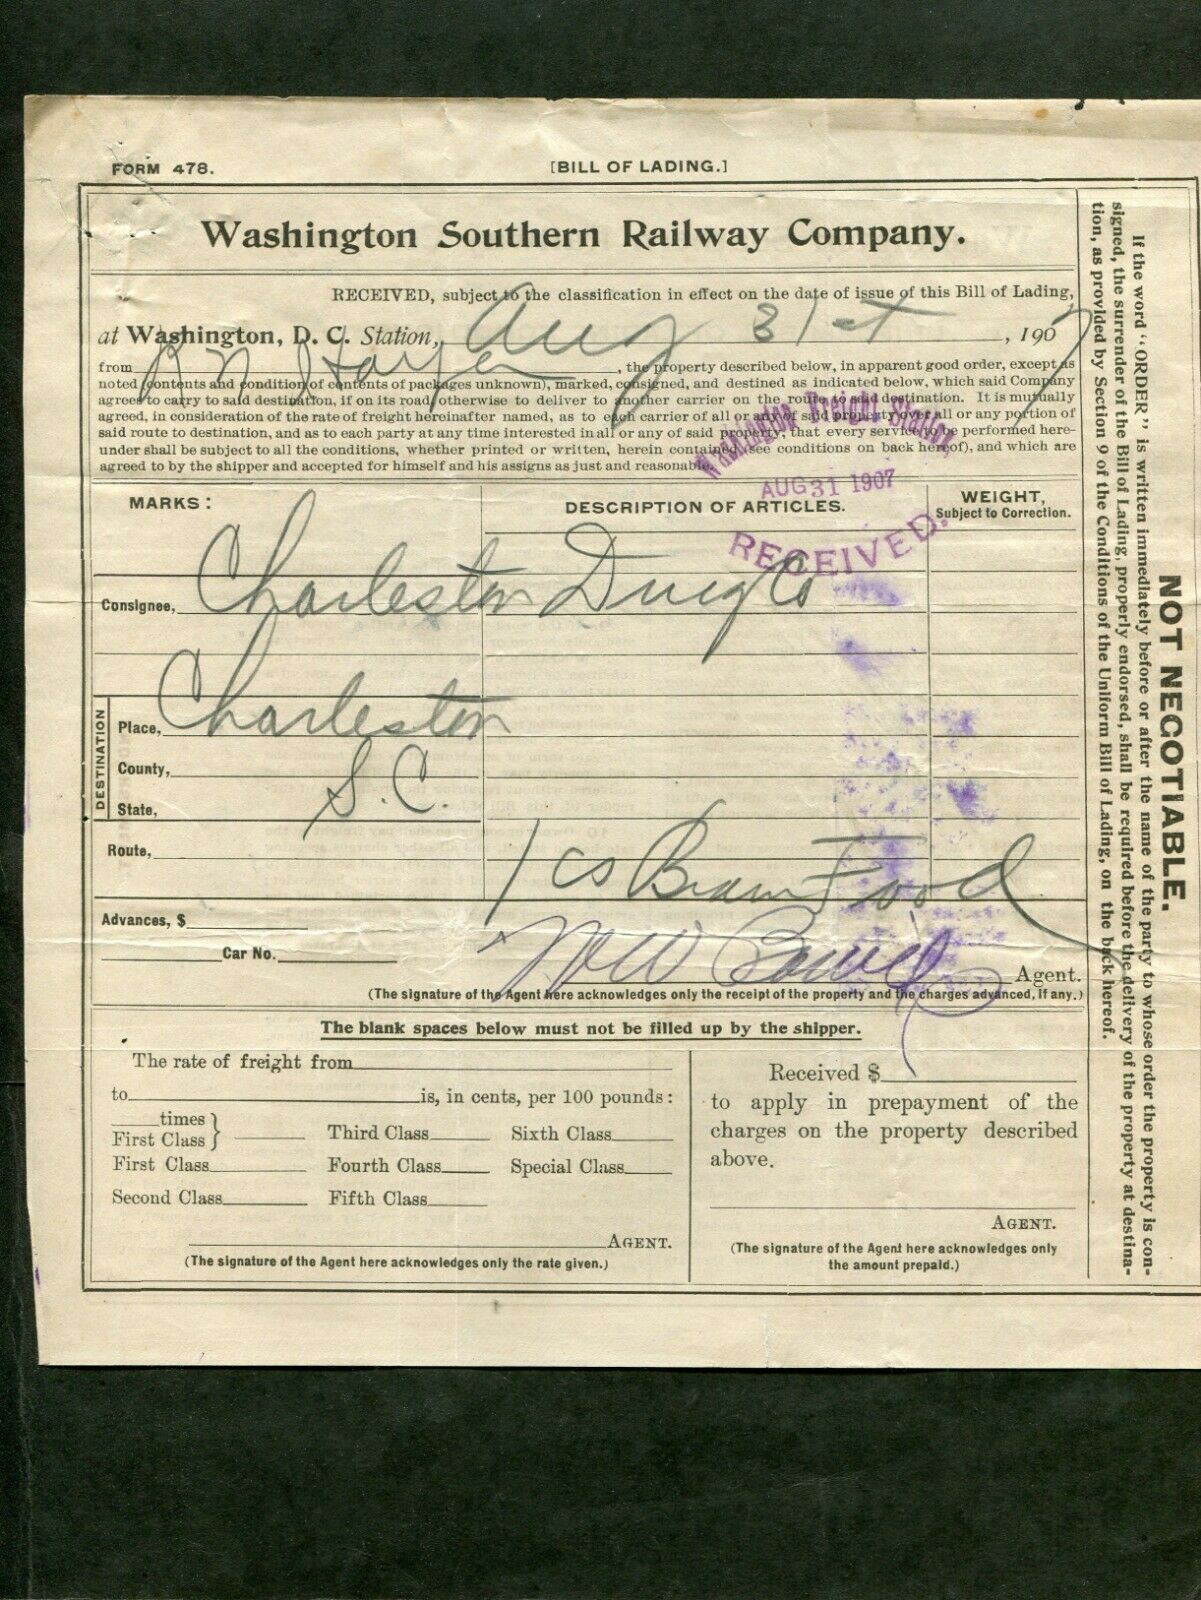 FORM 478.
[BILL OF LADING.]
Washington Southern Railway Company.
RECEIVED, subject to the classification in effect on the date of issue of this Bill of Lading,
at Washington, D. C. Station, Aug 31st, 1907
from , the property described below, in apparent good order, except as
noted (contents and condition of contents of packages unknown), marked, consigned, and destined as indicated below, which said Company
agrees to carry to said destination, if on its road, otherwise to deliver to another carrier on the route to said destination. It is mutually
agreed, in consideration of the rate of freight hereinafter named, as to each carrier of all or any of said property over all or any portion of
said route to destination, and as to each party at any time interested in all or any of said property, that every service to be performed here-
under shall be subject to all the conditions, whether printed or written, herein contained (see conditions on back hereof), and which are
agreed to by the shipper and accepted for himself and his assigns as just and reasonable.
Washington Freight Station,
AUG 31 1907
RECEIVED.
MARKS:
DESCRIPTION OF ARTICLES.
WEIGHT,
Subject to Correction.
Consignee, Charleston Drug Co
DESTINATION
Place, Charleston
County,
State, S.C.
Route,
1 cs Brain Food
Advances, $
Car No.
Agent.
(The signature of the Agent here acknowledges only the receipt of the property and the charges advanced, if any.)
The blank spaces below must not be filled up by the shipper.
The rate of freight from
to is, in cents, per 100 pounds:
times
First Class }
Third Class
Sixth Class
First Class
Fourth Class
Special Class
Second Class
Fifth Class
AGENT.
(The signature of the Agent here acknowledges only the rate given.)
Received $
to apply in prepayment of the
charges on the property described
above.
AGENT.
(The signature of the Agent here acknowledges only
the amount prepaid.)
NOT NEGOTIABLE.
If the word "ORDER" is written immediately before or after the name of the party to whose order the property is con-
signed, the surrender of the Bill of Lading, properly endorsed, shall be required before the delivery of the property at destina-
tion, as provided by Section 9 of the Conditions of the Uniform Bill of Lading, on the back hereof.